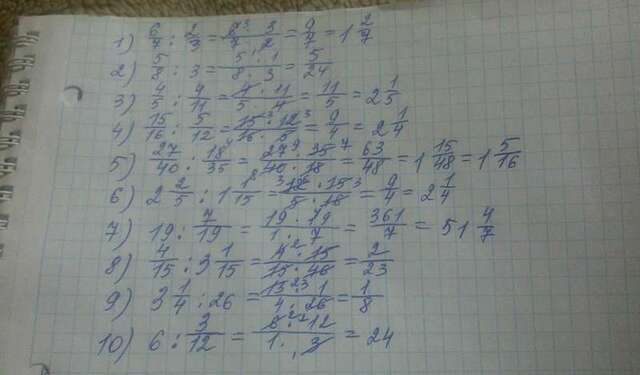 1) 6/7 : 2/3 = 6·3/7·2 = 9/7 = 1 2/7
2) 5/8 : 3 = 5·1/8·3 = 5/24
3) 4/5 : 4/11 = 4·11/5·4 = 11/5 = 2 1/5
4) 15/16 : 5/12 = 15·12/16·5 = 9/4 = 2 1/4
5) 27/40 : 18/35 = 27·35/40·18 = 63/48 = 1 15/48 = 1 5/16
6) 2 2/5 : 1 1/15 = 12·15/5·18 = 9/4 = 2 1/4
7) 19 : 7/19 = 19·19/1·7 = 361/7 = 51 4/7
8) 4/15 : 3 1/15 = 4·15/15·46 = 2/23
9) 3 1/4 : 26 = 13·1/4·26 = 1/8
10) 6 : 3/12 = 6·12/1·3 = 24